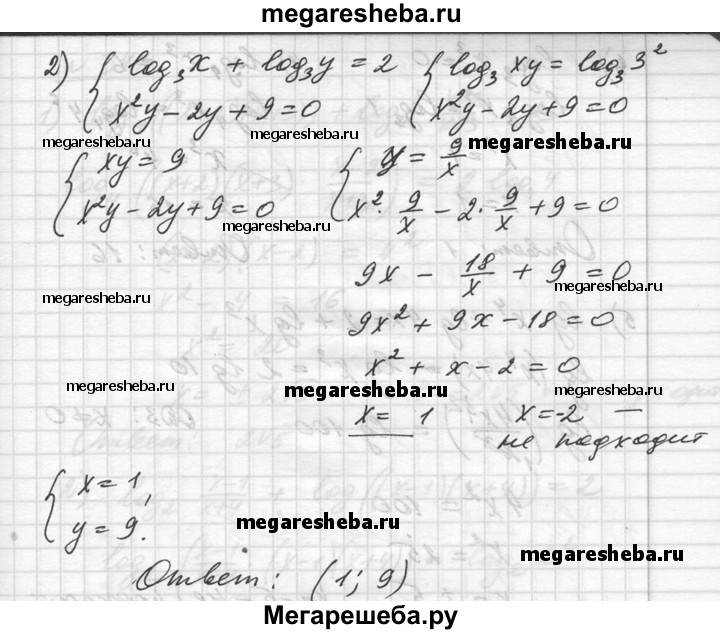 megaresheba.ru
2) { log₃x + log₃y = 2 { log₃xy = log₃3²
x²y − 2y + 9 = 0 x²y − 2y + 9 = 0
megaresheba.ru megaresheba.ru megaresheba.ru
{ xy = 9 { y = 9/x
x²y − 2y + 9 = 0 x² · 9/x − 2 · 9/x + 9 = 0
megaresheba.ru
9x − 18/x + 9 = 0
megaresheba.ru megaresheba.ru
9x² + 9x − 18 = 0
x² + x − 2 = 0
megaresheba.ru megaresheba.ru megaresheba.ru
x = 1 x = −2 —
не подходит
{ x = 1,
y = 9.
megaresheba.ru
megaresheba.ru
Ответ: (1; 9)
Мегарешеба.ру